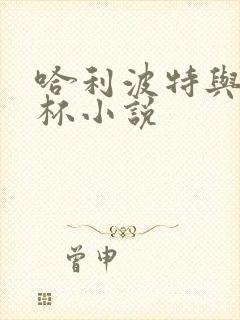 哈利波特與
杯小說
曾申